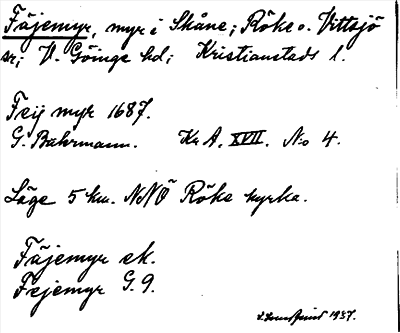 Fäjemyr, myr i Skåne; Röke o. Vittsjö
sr; V. Göinge hd; Kristianstads l.
Feij myr 1687.
G. Buhrmann. Kr A. XVII. No 4.
Läge 5 km. NNÖ Röke kyrka.
Fäjemyr ek.
Fejemyr G. 9.
1937.